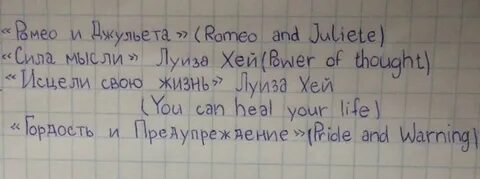 «Ромео и Джульета» (Romeo and Juliete)
«Сила мысли» Луиза Хей (Power of thought)
«Исцели свою жизнь» Луиза Хей
(You can heal your life)
«Гордость и Предупреждение» (Pride and Warning)